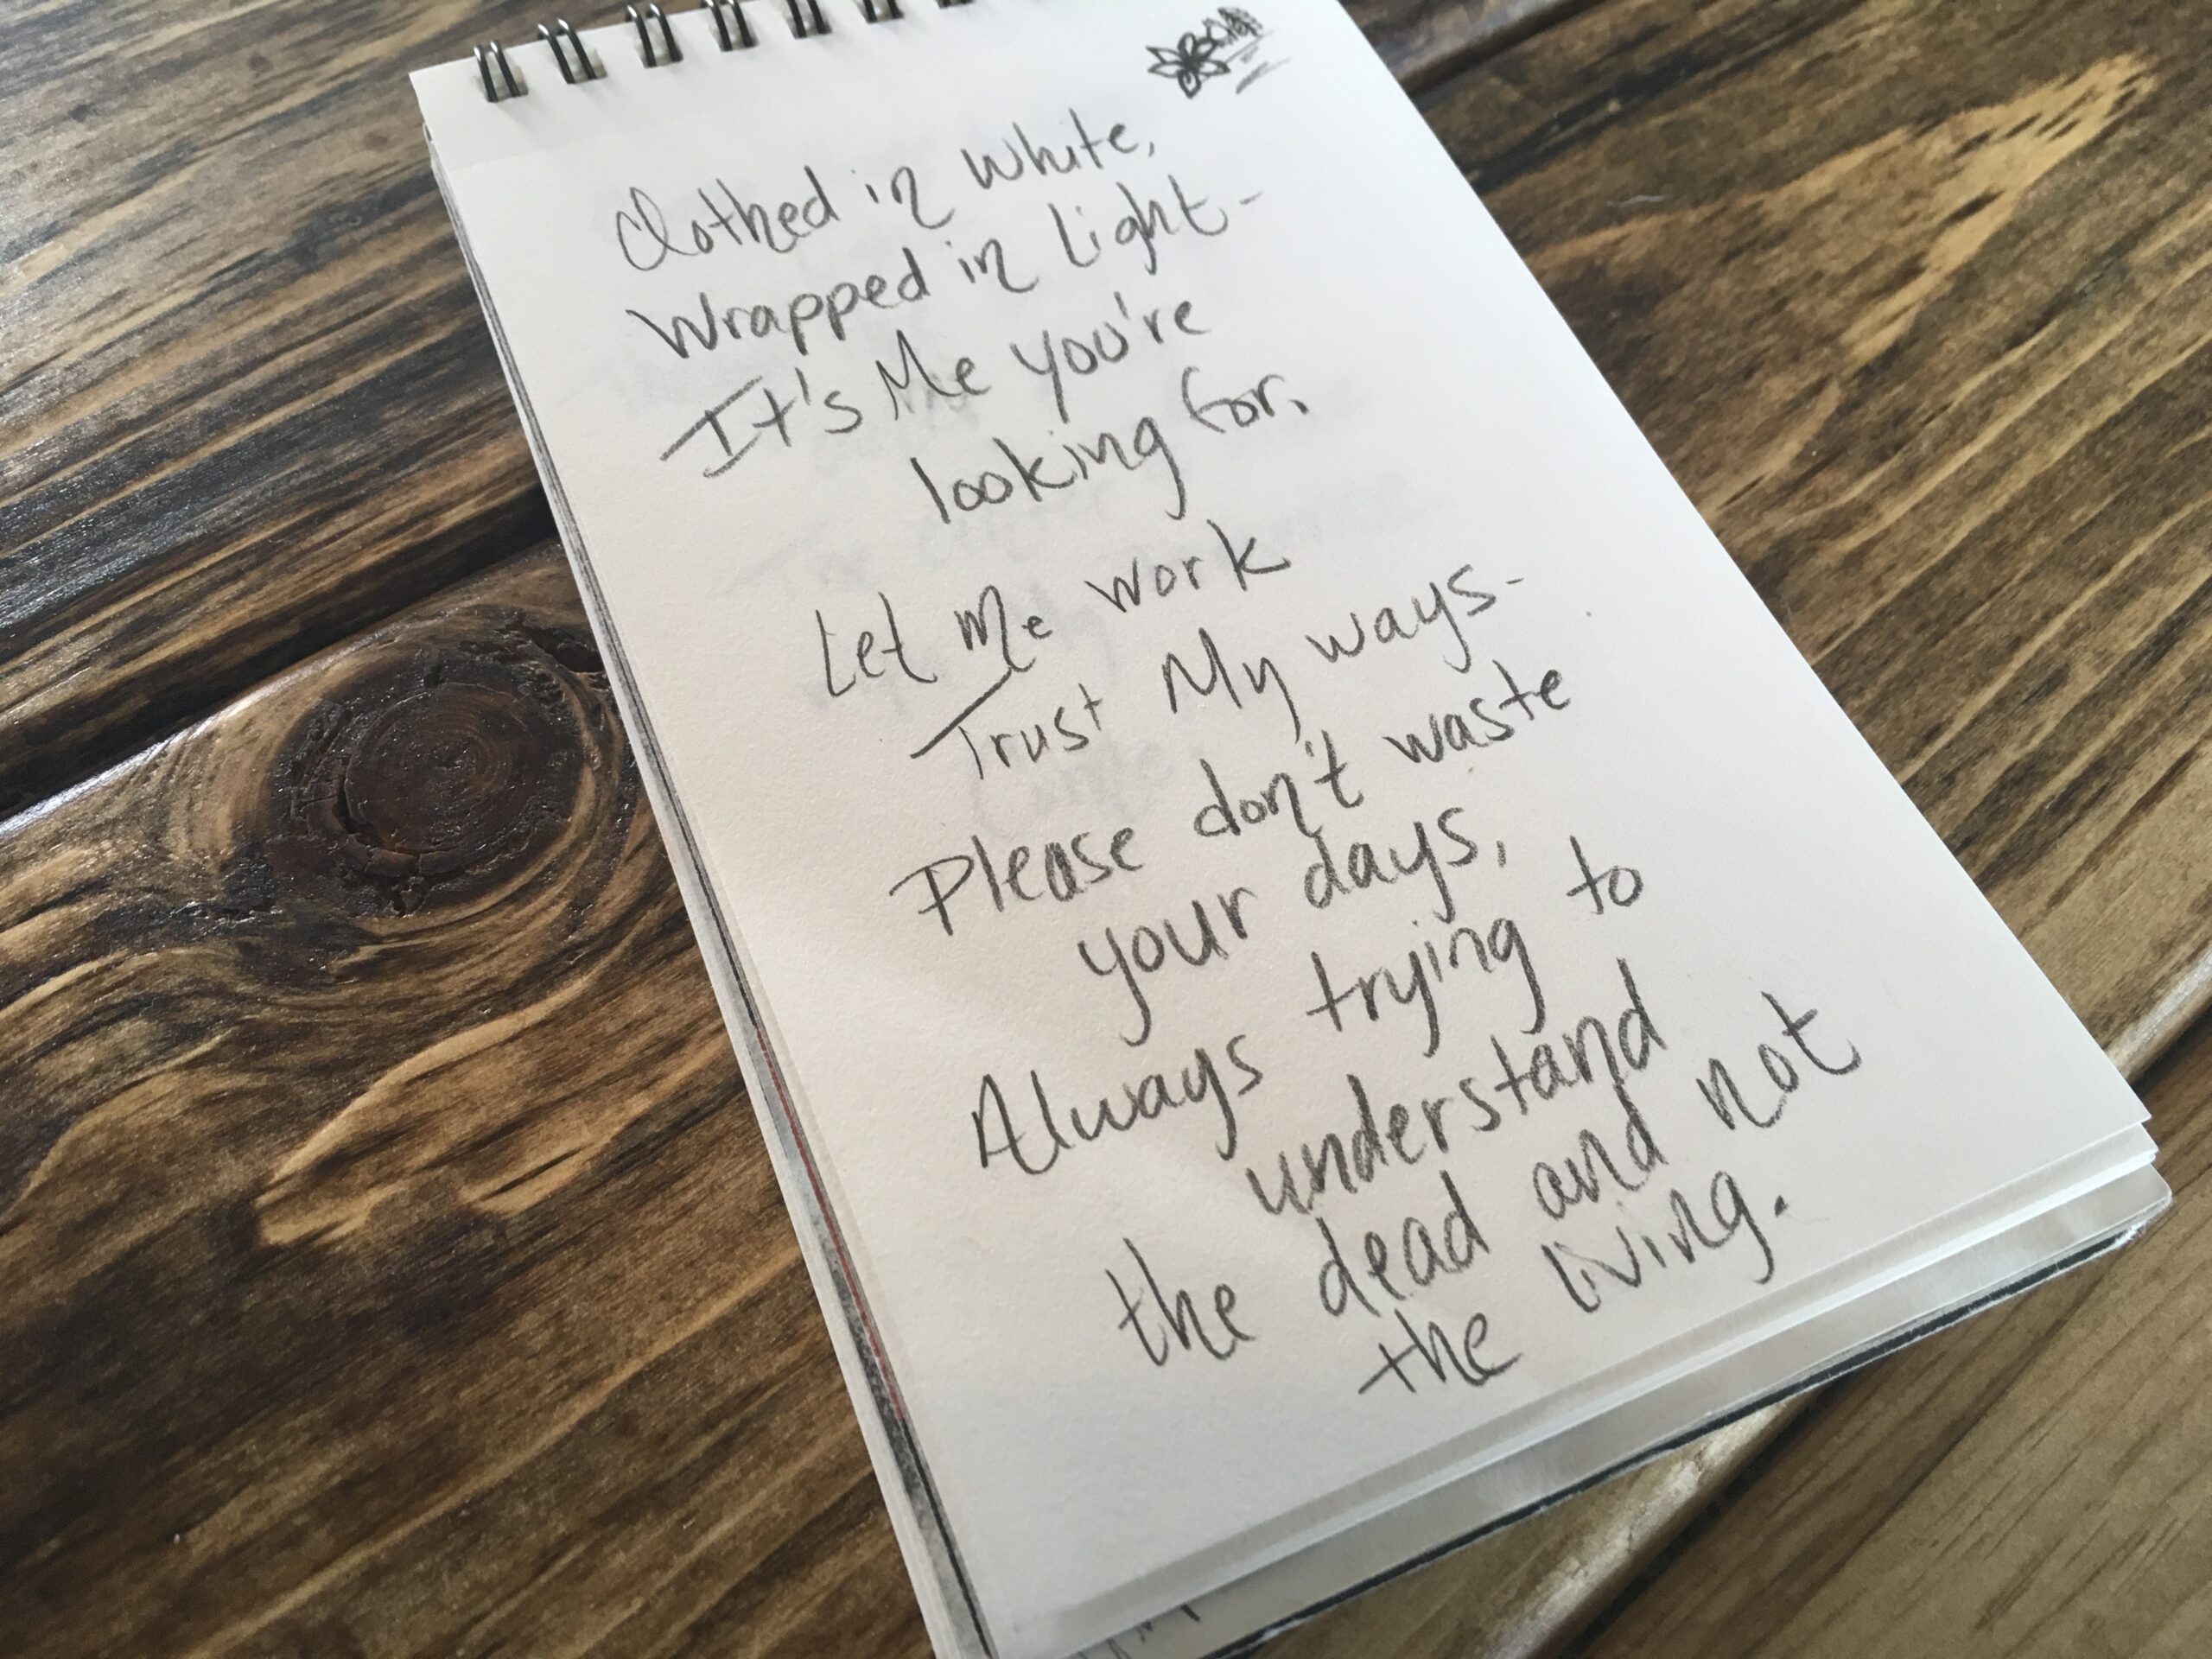 Clothed in White,
Wrapped in Light -
It's Me you're
looking for.
Let Me work
Trust My ways -
Please don't waste
your days,
Always trying to
understand
the dead and not
the living.